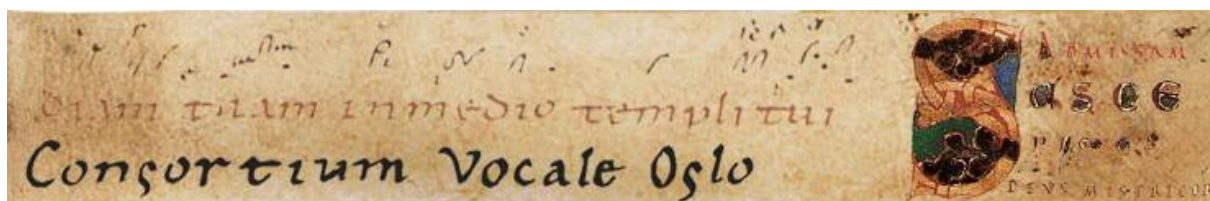 diam tuam inmedio templi tui
Consortium Vocale Oslo
AD MISSAM
SUSCE
DEUS MISERICOR